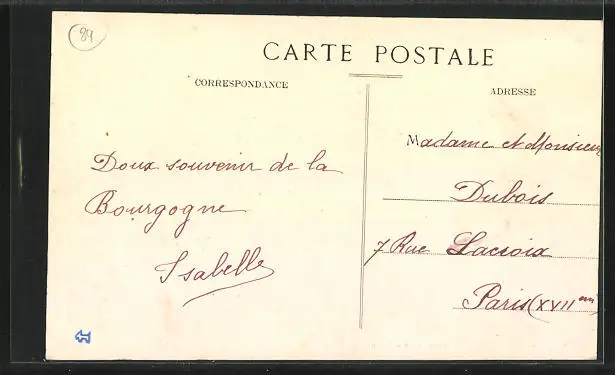 89
CARTE POSTALE
CORRESPONDANCE
ADRESSE
Doux souvenir de la
Bourgogne
Isabelle
Madame et Monsieur
Dubois
7 Rue Lacroix
Paris (XVII em)